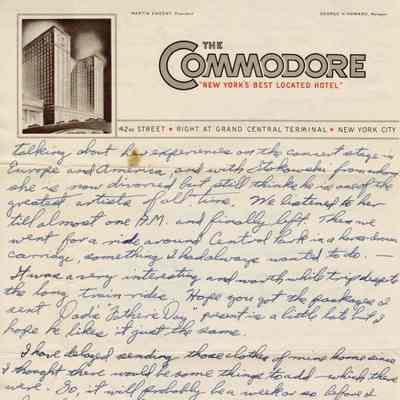 MARTIN SWEENY, President
GEORGE H. HOWARD, Manager
THE
COMMODORE
"NEW YORK'S BEST LOCATED HOTEL"
42ND STREET • RIGHT AT GRAND CENTRAL TERMINAL • NEW YORK CITY
talking about her experiences on the concert stage in
Europe and America, and with Stokowski from whom
she is now divorced but still thinks he is one of the
greatest artists of all time. We listened to her
till almost one A.M. and finally left. Then we
went for a ride around Central Park in a horse-drawn
carriage, something I had always wanted to do. —
It was a very interesting and worth while trip despite
the long train rides. Hope you got the packages I
sent. Dad's "Father's Day" present is a little late but I
hope he likes it just the same.
I have delayed sending those clothes of mine home since
I thought there would be some things to add — which there
were. So, it will probably be a week or so before I